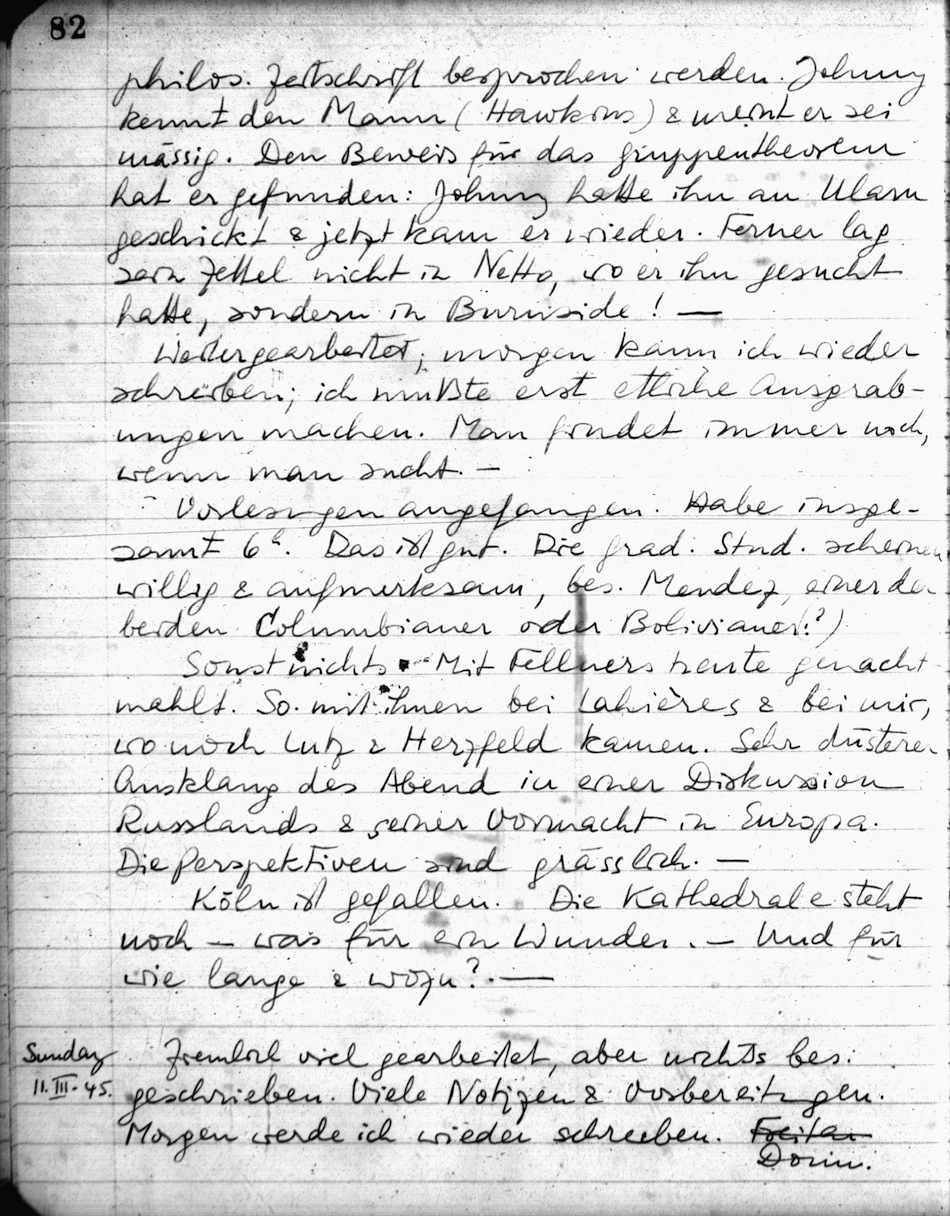 82
philos. Zeitschrift besprochen werden. Johnny
kennt den Mann (Hawkins) & meint er sei
mässig. Den Beweis für das Gruppentheorem
hat er gefunden: Johnny hatte ihn an Ulam
geschickt & jetzt kam er wieder. Ferner lag
sein Zettel nicht in Netto, wo er ihn gesucht
hatte, sondern in Burnside! —
Weitergearbeitet; morgen kann ich wieder
schreiben; ich mußte erst etliche Ausgrab-
ungen machen. Man findet immer noch,
wenn man sucht. —
Vorlesungen angefangen. Habe insge-
samt 6h. Das ist gut. Die grad. Stud. scheinen
willig & aufmerksam, bes. Mendez, einer der
beiden Columbianer oder Bolivianer(?)
Sonst nichts. Mit Fellners heute genacht-
mahlt. So. mit ihnen bei Lahières & bei mir,
wo noch Lutz & Herzfeld kamen. Sehr düsterer
Ausklang des Abend in einer Diskussion
Russlands & seiner Vormacht in Europa.
Die Perspektiven sind grässlich. —
Köln ist gefallen. Die Kathedrale steht
noch — was für ein Wunder. — Und für
wie lange & wozu? —
Sunday Ziemlich viel gearbeitet, aber nichts bes.
11.III.45. geschrieben. Viele Notizen & Vorbereitungen.
Morgen werde ich wieder schreiben. Freitag
Donn.